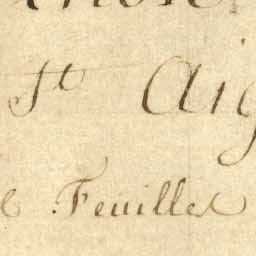 St Aig
Feuilles